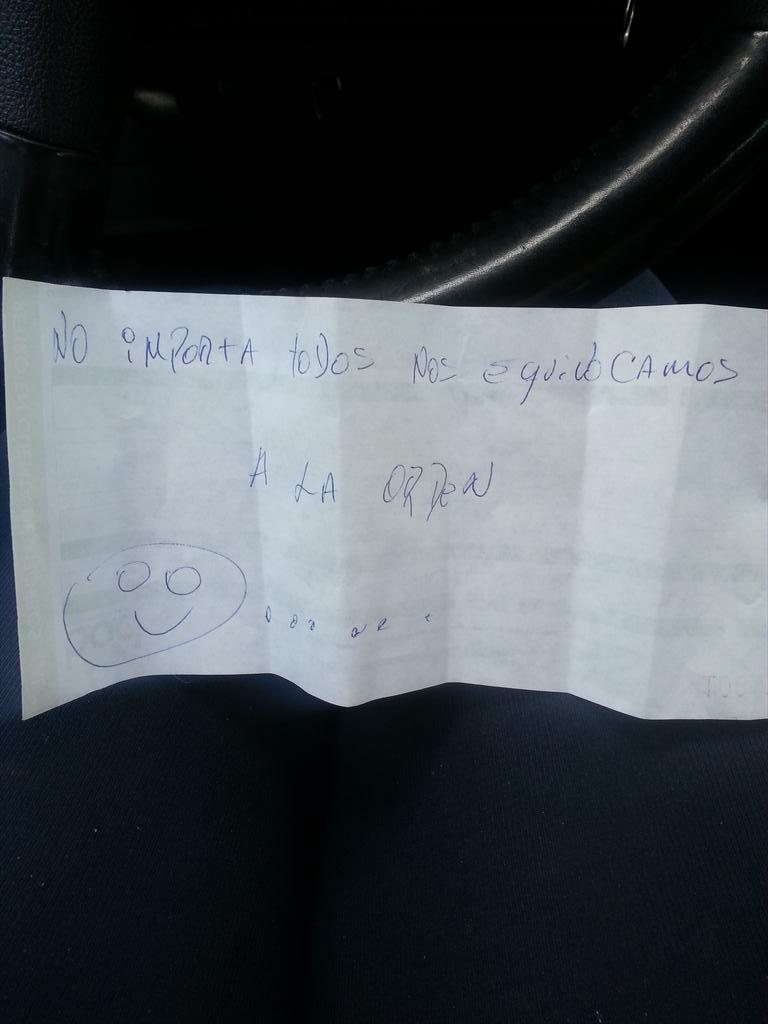 NO iMPORTA toDOS NOS EquivoCAMOS
A LA ORDEN